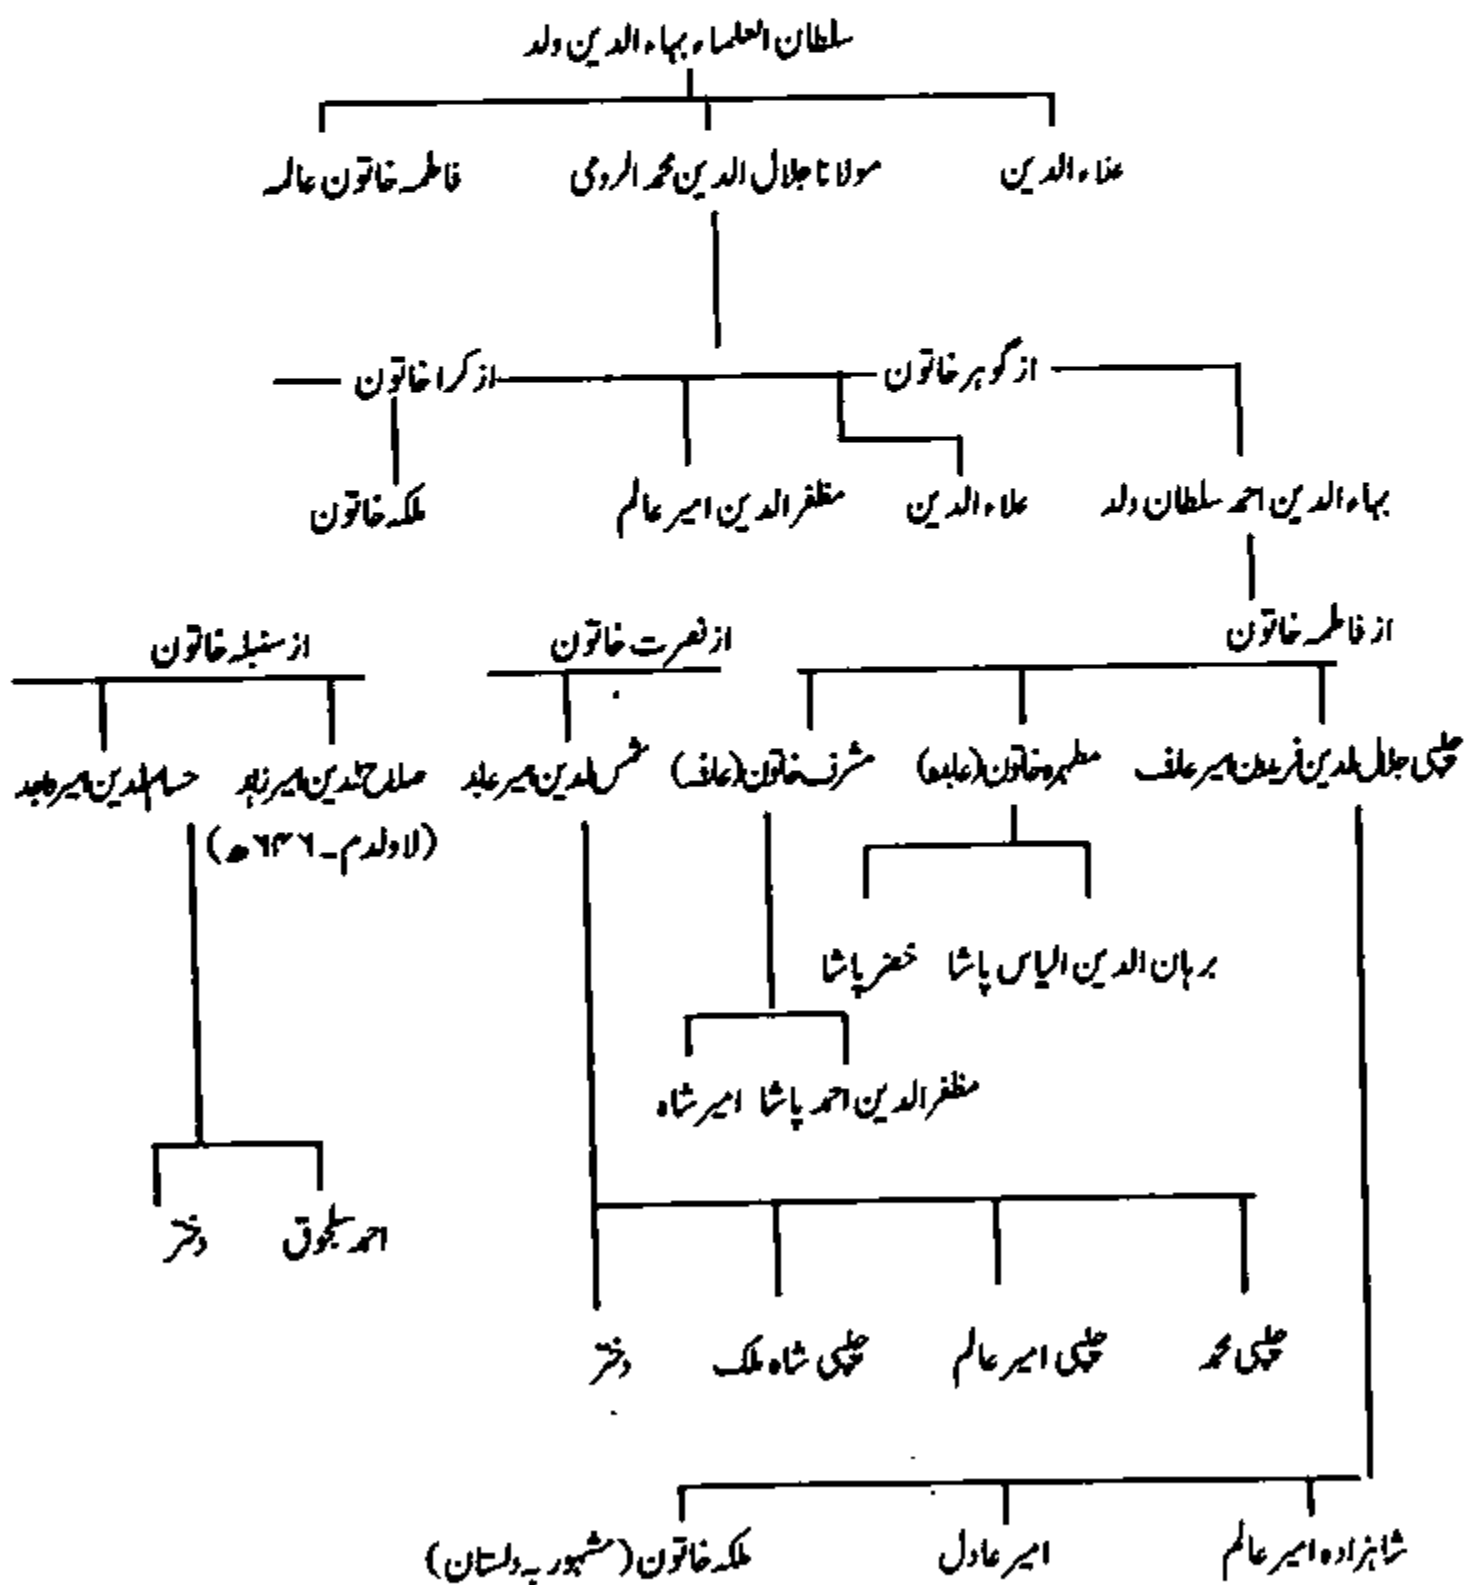 سلطان العلماء بہاء الدین ولد
علاء الدین
مولانا جلال الدین محمد الرومی
فاطمہ خاتون عالمہ
از گوہر خاتون
از کرا خاتون
بہاء الدین احمد سلطان ولد
علاء الدین
مظفر الدین امیر عالم
ملکہ خاتون
از فاطمہ خاتون
از نصرت خاتون
از سنبلہ خاتون
چلپی جلال الدین فریدون میر عارف
مطہرہ خاتون (عابدہ)
مشرف خاتون (عارفہ)
شمس الدین میر عابد
صلاح الدین میر زاہد
(لاولد م ـ ۶۴۶ھ)
حسام الدین میر واجد
برہان الدین الیاس پاشا
خضر پاشا
مظفر الدین احمد پاشا
امیر شاہ
احمد سلجوق
دختر
چلپی محمد
چلپی امیر عالم
چلپی شاہ ملک
دختر
شاہزادہ امیر عالم
امیر عادل
ملکہ خاتون (مشہور بہ دلستان)